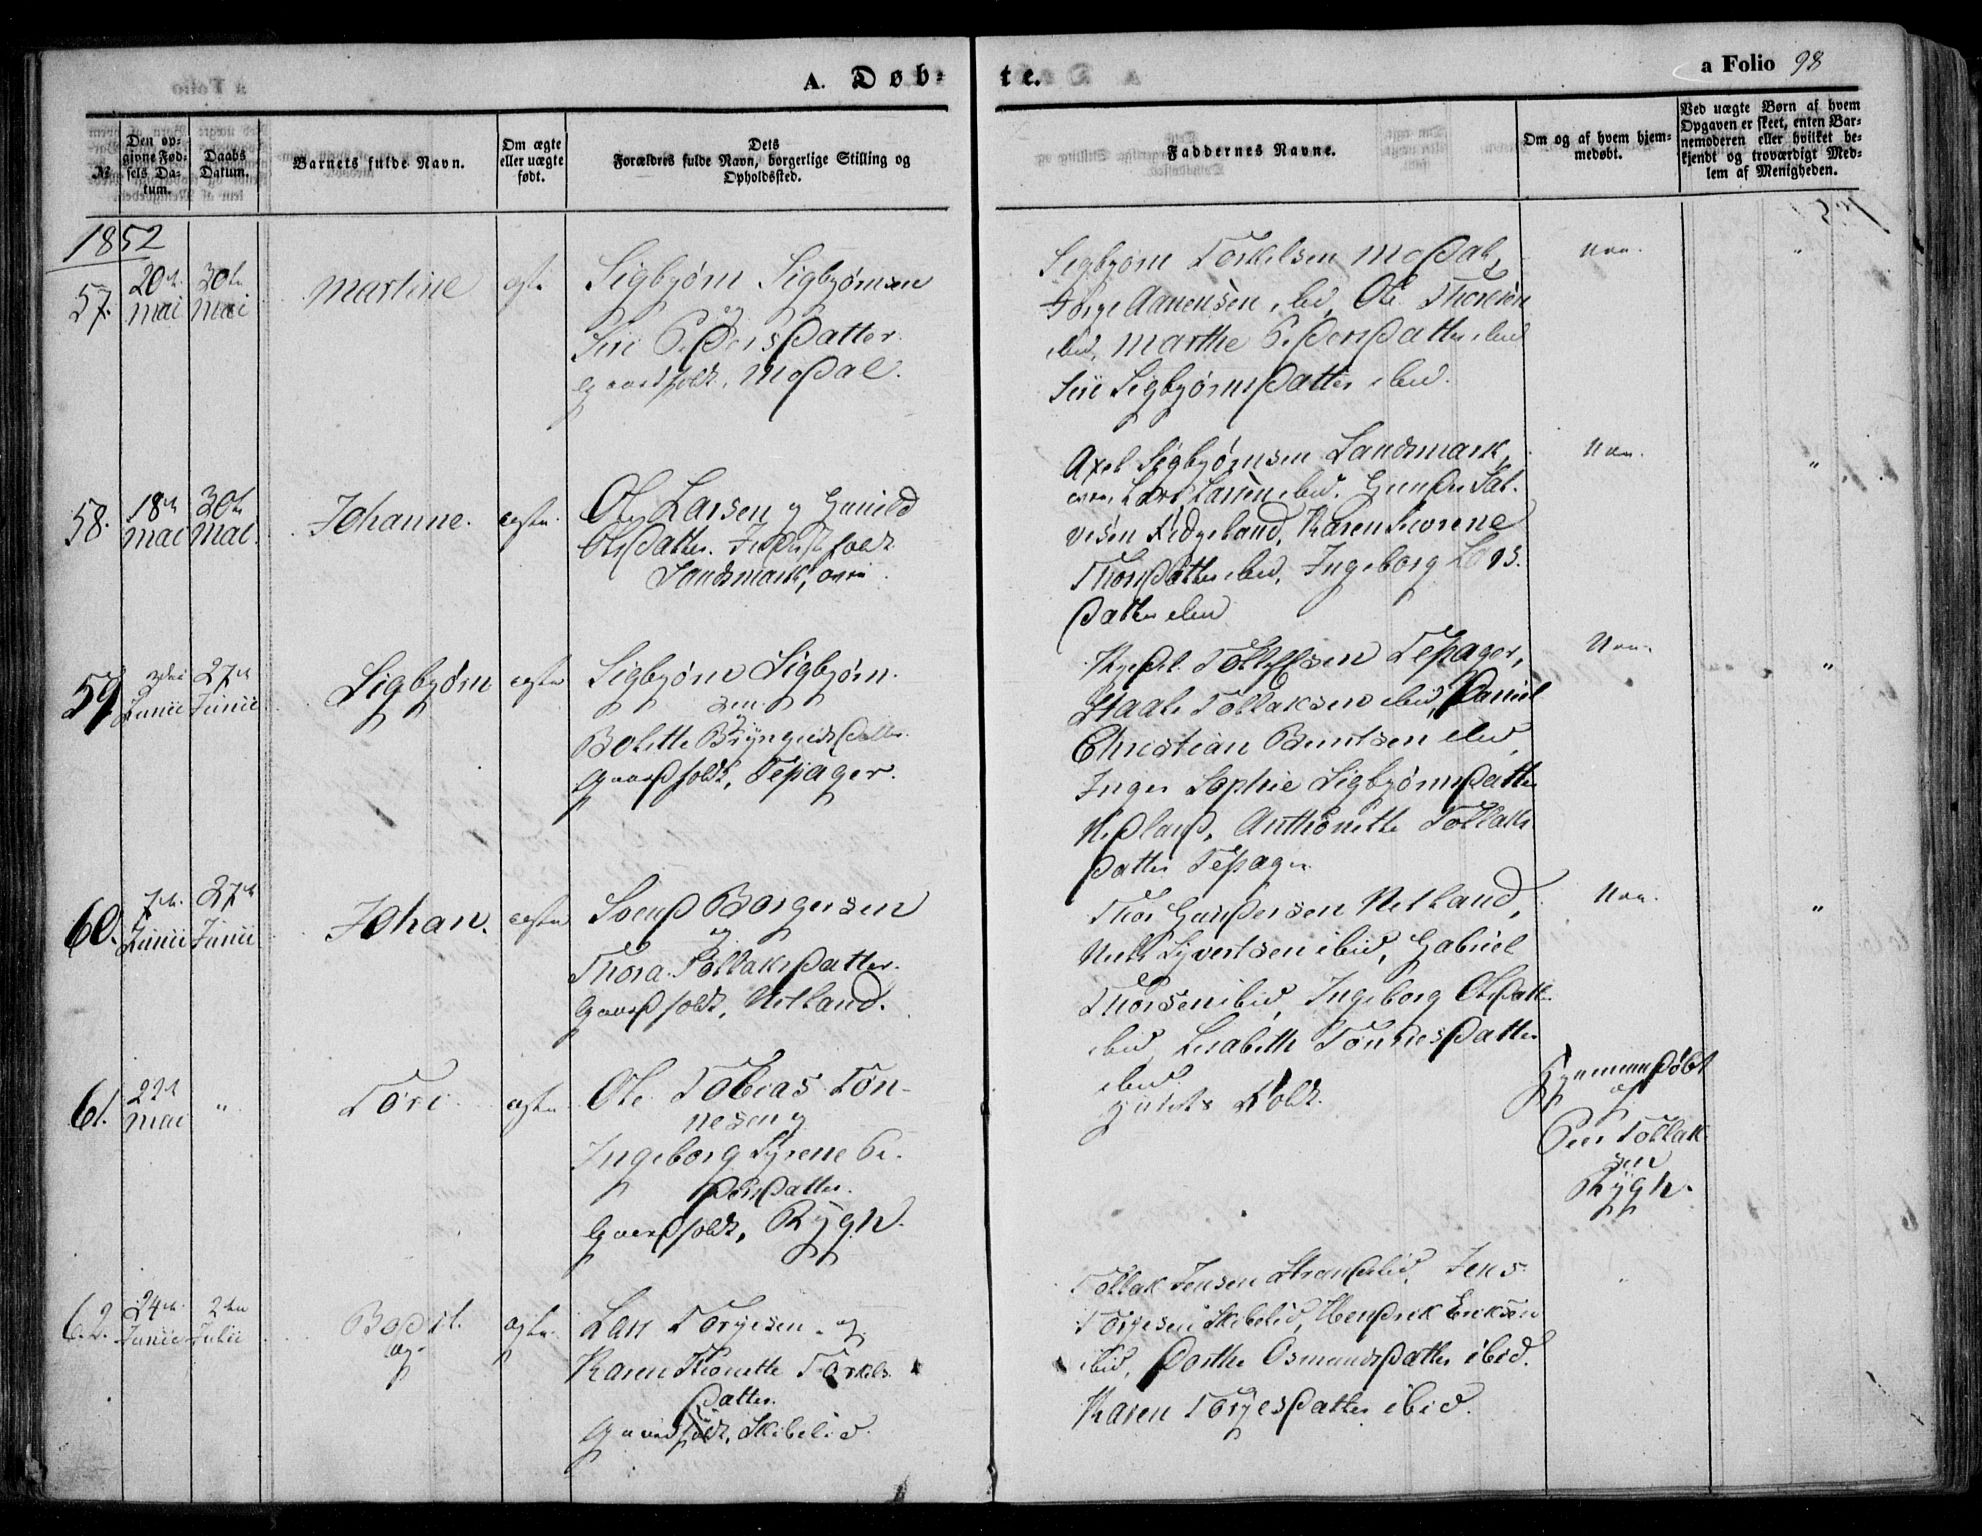 A. Døb-
te.
a Folio 98
№
Den op-
givne Fød-
sels Da-
tum.
Daabs
Datum.
Barnets fulde Navn.
Om ægte
eller uægte
født.
Dets
Forældres fulde Navn, borgerlige Stilling og
Opholdssted.
Faddernes Navne.
Om og af hvem hjem-
medøbt.
Ved uægte Børn af hvem
Opgaven er skeet, enten Bar-
nemoderen eller hvilket be-
kjendt og troværdigt Med-
lem af Menigheden.
1852
57.
20de
Mai
30te
Mai
Martine
ægte
Sigbjørn Sigbjørnsen
og
Siri Pedersdatter
Gaardfolk, Modal.
Sigbjørn Torkelsen Modal,
Aanensen ibid, Ole
ibid, Marthe Pedersdatter ibid
Siri Sigbjørnsdatter ibid.
Nei.
"
58.
18de
Mai
30te
Mai
Johanne.
ægte.
Ole Larsen og Gunild
Olsdatter. Inderstfolk
Landsmark,
Axel Sigbjørnsen Landsmark,
Lars Larsen ibid. Gunder Sal-
vesen Ødgeland, Karen Severene
Thorsdatter ibid, Ingeborg
datter ibid
Nei.
"
59
Junii
27de
Junii
Sigbjørn
ægte
Sigbjørn Sigbjørn-
sen og
Bolette Bryngelsdatter
Gaardfolk, Tepager.
Tollefsen Tepager,
Staale Tollaksen ibid, Daniel
Christian Berntsen ibid,
Inger Sophie Sigbjørnsdatter
Anthonette Tollaks
datter Tepager
Nei.
"
60.
7de
Junii
27de
Junii
Johan.
ægte
Svend Børgersen
og
Thora Tollaksdatter.
Gaardfolk, Netland.
Thor Gundersen Netland,
Niels Syvertsen ibid, Gabriel
Thorsen ibid, Ingeborg Olsdatter
ibid, Lisabeth Tønnesdatter
ibid.
Nei.
"
61.
22de
Mai
"
Tore.
ægte
Ole Tobias Tøn-
nesen og
Ingeborg Syrene Pe-
dersdatter.
Gaardfolk, Rygh.
Folk.
Hjemmedøbt
af
Peer Tollak
sen
Rygh.
62.
24de
Junii
2den
Julii
Bodil.
ægte.
Lars Torjesen og
Karen Thonette Torkels
datter.
Gaardfolk, Skibelid.
Tollak Jensen Strandelid, Jens
Torjesen Skibelid, Hendrik Eriksen
ibid, Dorthe Osmundsdatter ibid.
Karen Torjesdatter ibid.